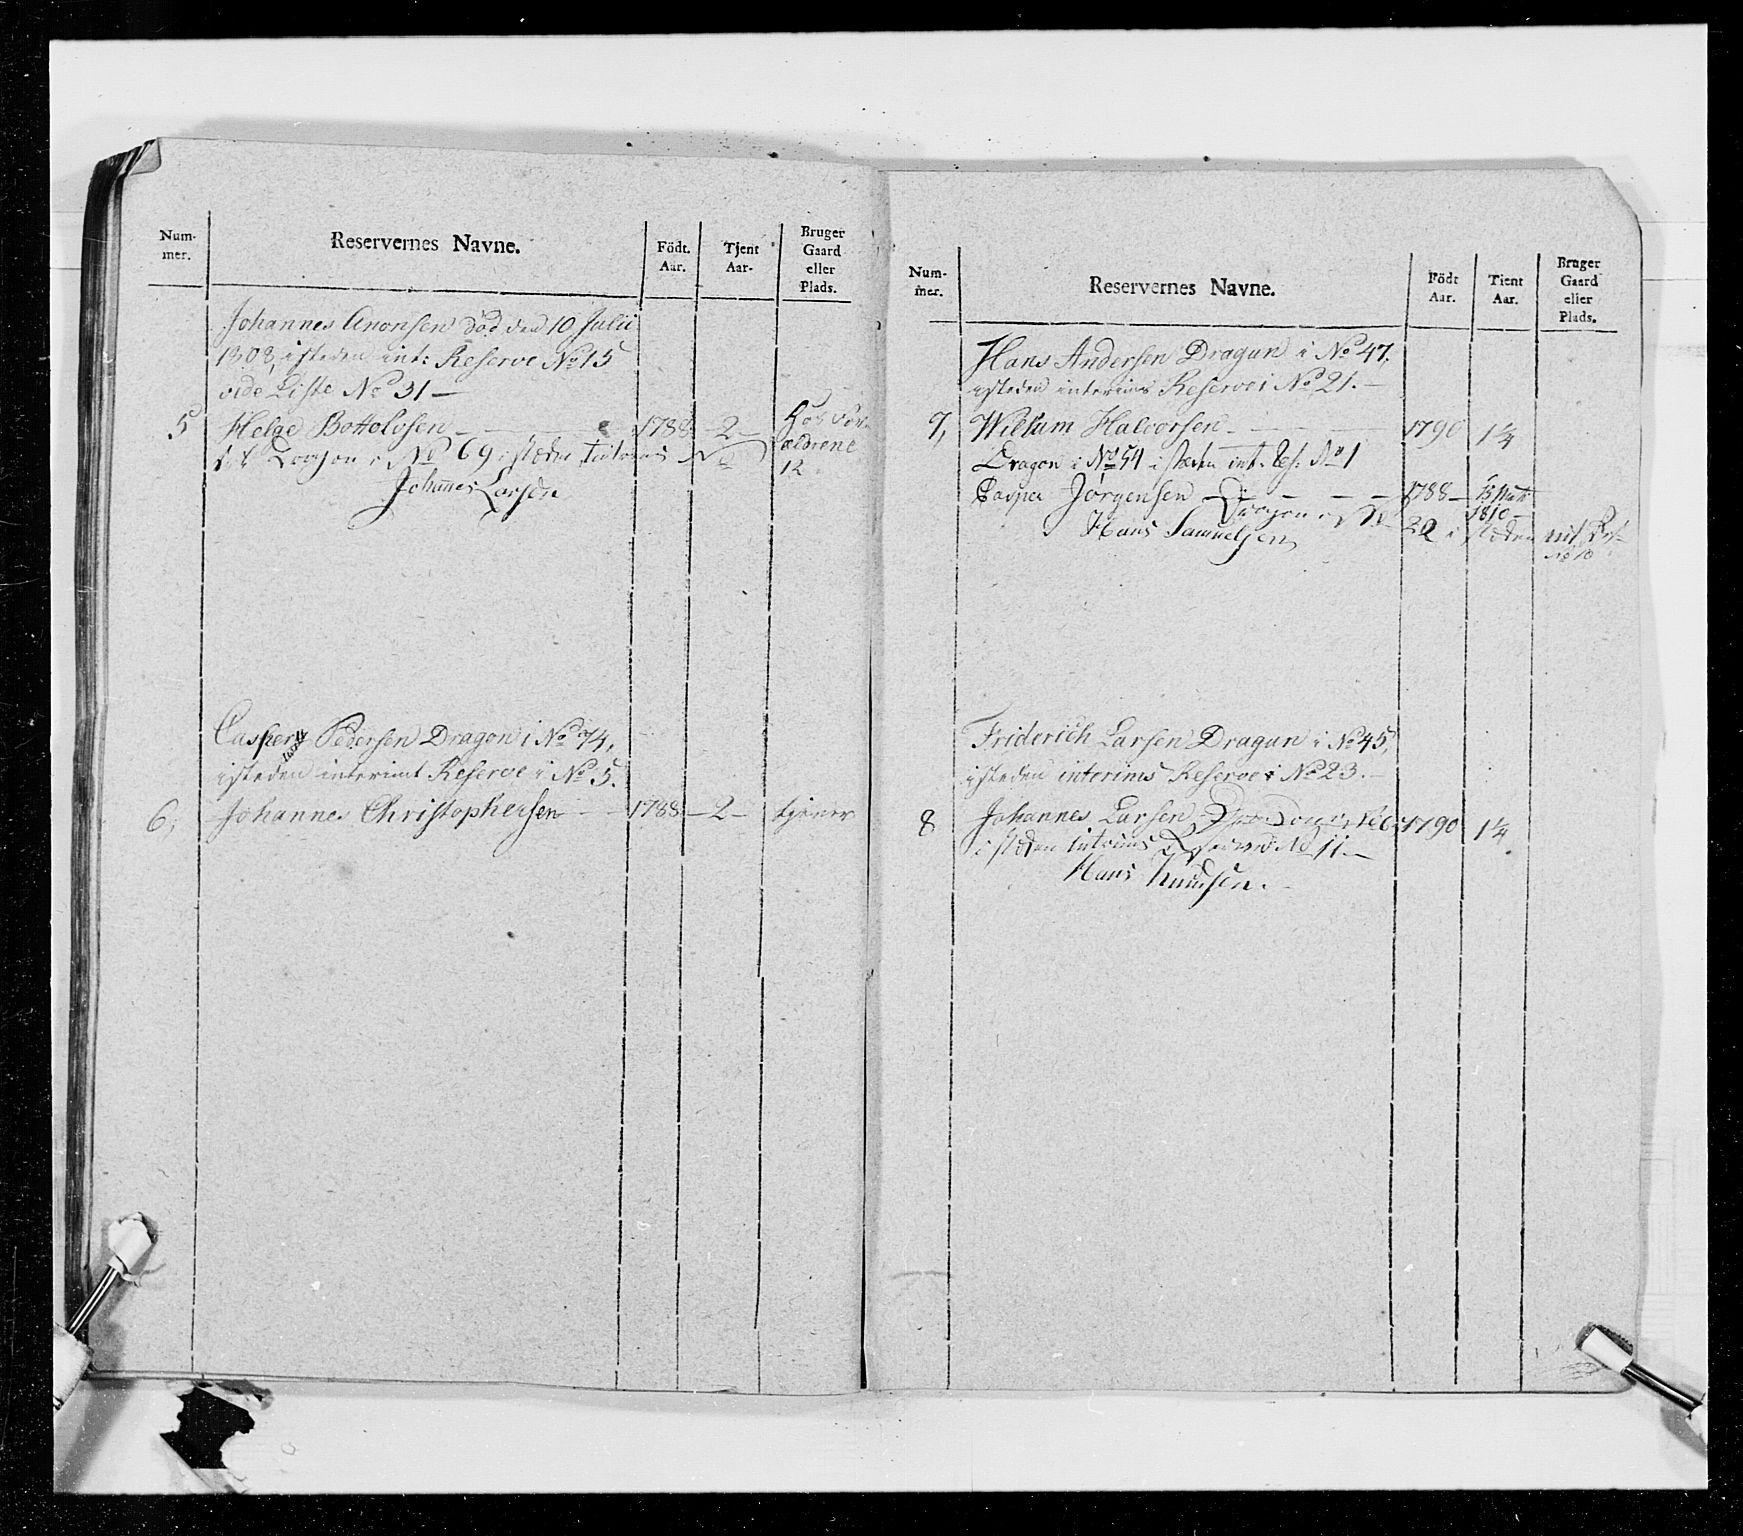 Num-
mer.
Reservernes Navne.
Födt.
Aar.
Tjent
Aar.
Bruger
Gaard
eller
Plads.
Johannes Anonsen död den 10 Julii
1808, isteden int: Reserve No 15
vide Liste No 31 —
5 Helge Bottolvsen — 1788 — 2 —
No 69 isteden
12
Johannes Larsen
Casper Pedersen Dragon i No 74,
isteden interims Reserve i No 5.
6, Johannes Christophersen — 1788 — 2 — tjener
Num-
mer.
Reservernes Navne.
Födt
Aar.
Tient
Aar.
Bruger
Gaard
eller
Plads.
Hans Andersen Dragun i No 47,
isteden interims Reserve i No 21. —
7, Willum Halvorsen — 1790 1¼
Dragon i No 54 isteden int. Res. No 1
Casper Jørgensen — 1788 —
1810 —
Hans Samuelsen
Friderich Larsen Dragun i No 45,
isteden interims Reserve i No 23. —
8 Johannes Larsen 1790 1¼
isteden interims Reserve No 11. —
Hans Knudsen.